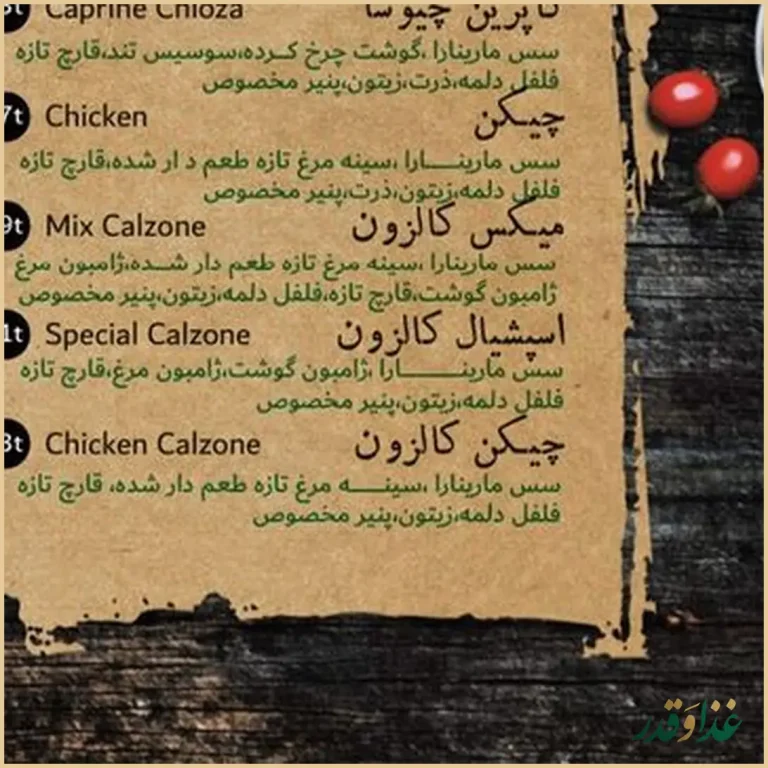 Caprine Chioza کاپرین چیوسا
سس مارینارا ،گوشت چرخ کرده،سوسیس تند،قارچ تازه
فلفل دلمه،ذرت،زیتون،پنیر مخصوص
7t Chicken چیکن
سس مارینارا ،سینه مرغ تازه طعم د ار شده،قارچ تازه
فلفل دلمه،زیتون،ذرت،پنیر مخصوص
9t Mix Calzone میکس کالزون
سس مارینارا ،سینه مرغ تازه طعم دار شده،ژامبون مرغ
ژامبون گوشت،قارچ تازه،فلفل دلمه،زیتون،پنیر مخصوص
1t Special Calzone اسپشیال کالزون
سس مارینارا ،ژامبون گوشت،ژامبون مرغ،قارچ تازه
فلفل دلمه،زیتون،پنیر مخصوص
3t Chicken Calzone چیکن کالزون
سس مارینارا ،سینه مرغ تازه طعم دار شده، قارچ تازه
فلفل دلمه،زیتون،پنیر مخصوص
غذاوقدر